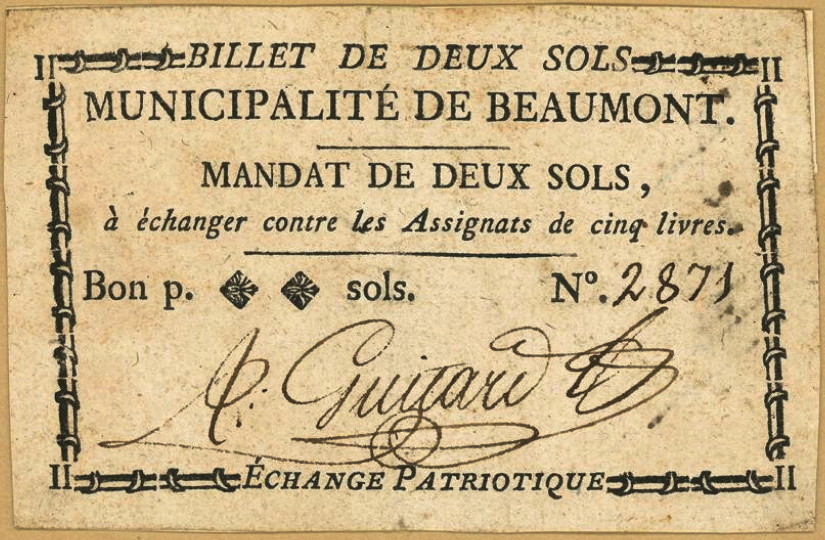 II BILLET DE DEUX SOLS II
MUNICIPALITÉ DE BEAUMONT.
MANDAT DE DEUX SOLS,
à échanger contre les Assignats de cinq livres.
Bon p. sols. Nº. 2871
Guizard
II ÉCHANGE PATRIOTIQUE II